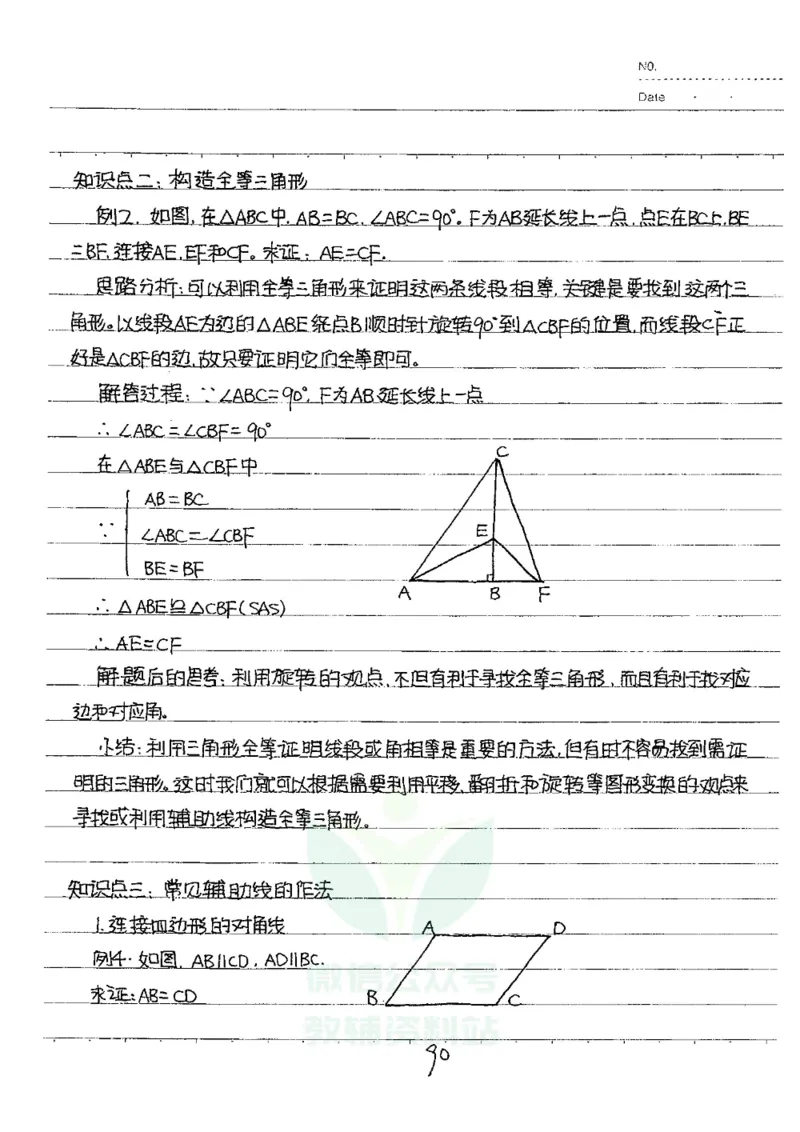 NO.
Date
知识点二：构造全等三角形
例2. 如图,在△ABC中,AB=BC,∠ABC=90°。F为AB延长线上一点,点E在BC上,BE
=BF,连接AE,EF和CF。求证：AE=CF.
思路分析：可以利用全等三角形来证明这两条线段相等,关键是要找到这两个三
角形。以线段AE为边的△ABE绕点B顺时针旋转90°到△CBF的位置,而线段CF正
好是△CBF的边,故只要证明它们全等即可。
解答过程：∵∠ABC=90°,F为AB延长线上一点
∴∠ABC=∠CBF=90°
在△ABE与△CBF中
AB=BC
∵ ∠ABC=∠CBF
BE=BF
∴△ABE≌△CBF(SAS)
∴AE=CF
C
E
A B F
解题后的思考：利用旋转的观点,不但有利于寻找全等三角形,而且有利于找对应
边和对应角。
小结：利用三角形全等证明线段或角相等是重要的方法,但有时不容易找到需证
明的三角形。这时我们就可以根据需要利用平移、翻折和旋转等图形变换的观点来
寻找或利用辅助线构造全等三角形。
知识点三：常见辅助线的作法
1.连接四边形的对角线
例4.如图,AB∥CD,AD∥BC.
求证：AB=CD
A D
B C
微信公众号
教辅资料站
90